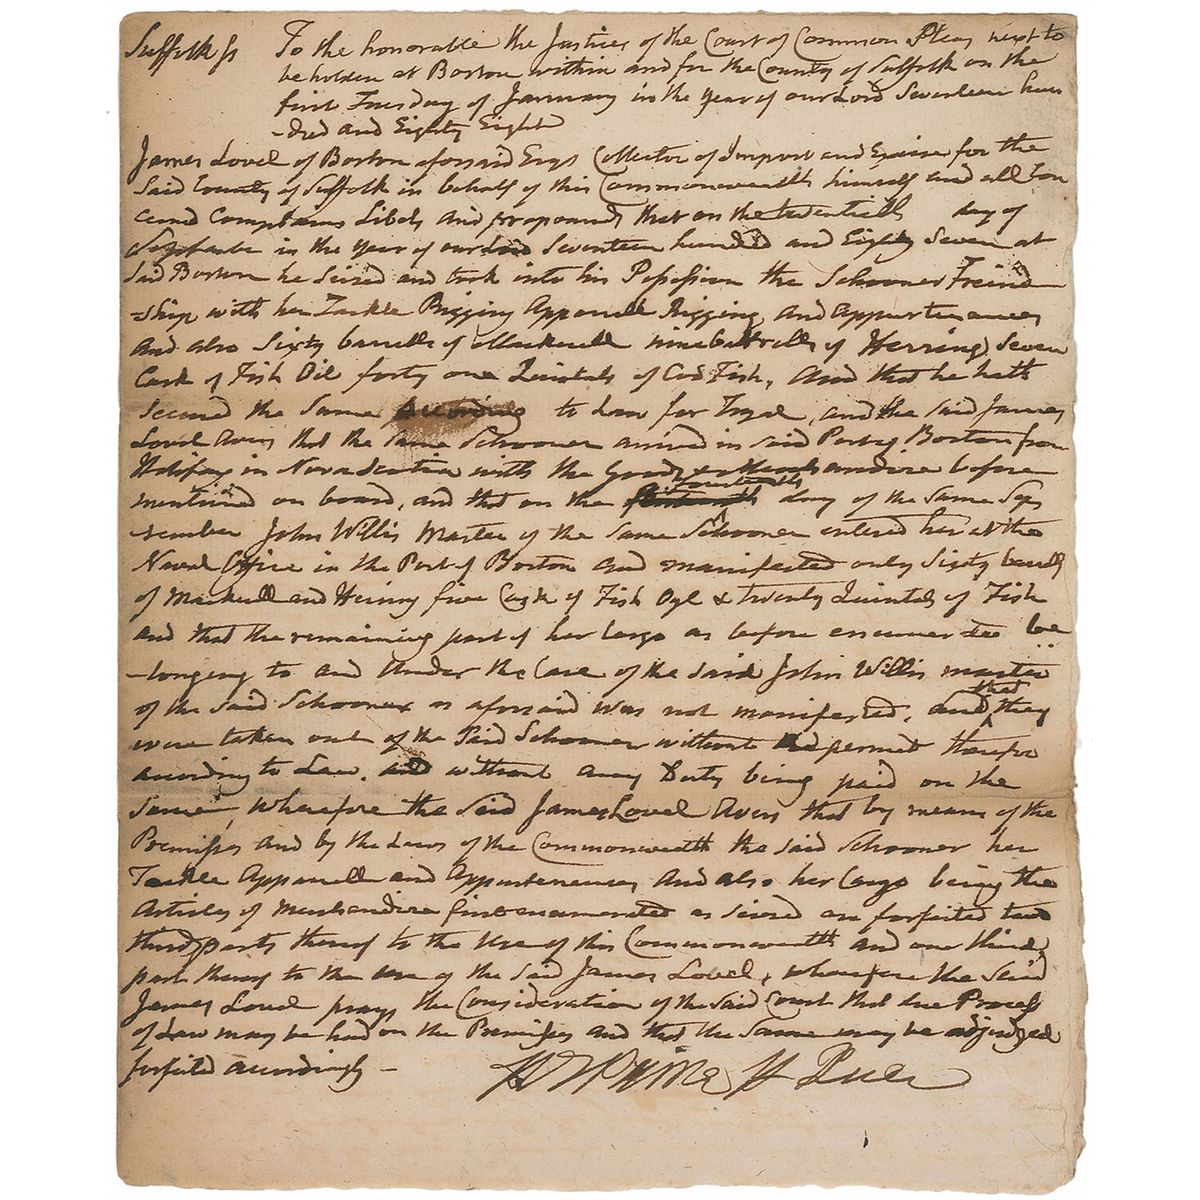 Suffolk ss To the honorable the Justices of the Court of Common Pleas next to
be holden at Boston within and for the County of Suffolk on the
first Tuesday of January in the year of our Lord Seventeen hun
-dred and Eighty Eight
James Lovel of Boston aforesaid Esqr Collector of Impost and Excise for the
Said County of Suffolk in behalf of this Commonwealth himself and all Con
cernd Complains Libels and propounds that on the day of
September in the year of our Lord Seventeen hundred and Eighty Seven at
Said Boston he Seized and took into his Possession the Schooner Freind
-ship with her Tackle Rigging Apparell Rigging and Appurtenances
And also Sixty barrells of Mackerell nine barrells of Herring, Seven
Cask of Fish Oil forty one Quintals of Cod Fish, And that he hath
Secured the Same According to Law for Tryal, and the Said James
Lovel Avers that the Same Schooner arrived in said Port of Boston from
Halifax in Nova Scotia with the Goods & Merchandize before
fourteenth
mentioned on board, and that on the day of the Same Sep
tember John Willis Master of the Same Schooner entered her at the
Naval Office in the Port of Boston and manifested only Sixty barrells
of Mackerell and Herring five Cask of Fish Oyl & twenty Quintals of Fish
and that the remaining part of her Cargo as before enumerated be
-longing to and Under the Care of the Said John Willis master
that
of the Said Schooner as aforesaid was not manifested, and they
were taken out of the Said Schooner without permit therefor
according to Law, and without any Duty being paid on the
Same, Wherefore the Said James Lovel Avers that by means of the
Premisses and by the Laws of the Commonwealth the said Schooner her
Tackle Apparell and Appurtenances And also her Cargo being the
Articles of Merchandize first enumerated as Seized are forfeited two
third parts thereof to the Use of this Commonwealth and one third
part thereof to the use of the Said James Lovel, wherefore the Said
James Lovel prays the Consideration of the Said Court that due Process
of Law may be had on the Premisses and that the Same may be adjudged
forfeited accordingly -